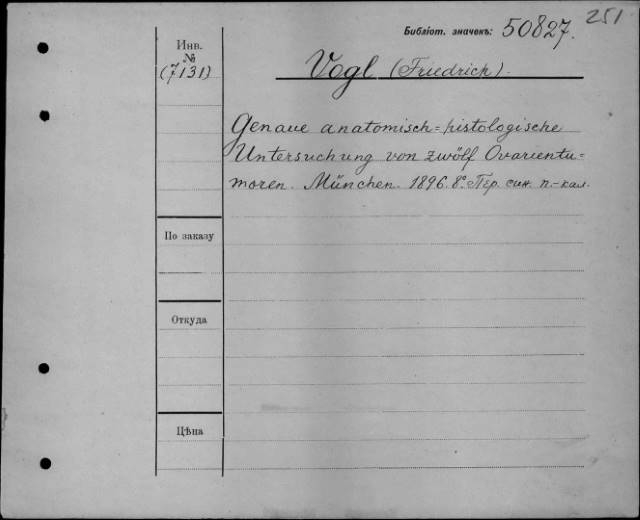 251
Библіот. значекъ: 50827.
Инв.
№
(7131)
Vogl (Friedrich).
Genaue anatomisch=histologische
Untersuchung von zwölf Ovarientu=
moren. München. 1896. 8º. Пер. син. п.-кал.
По заказу
Откуда
Цѣна